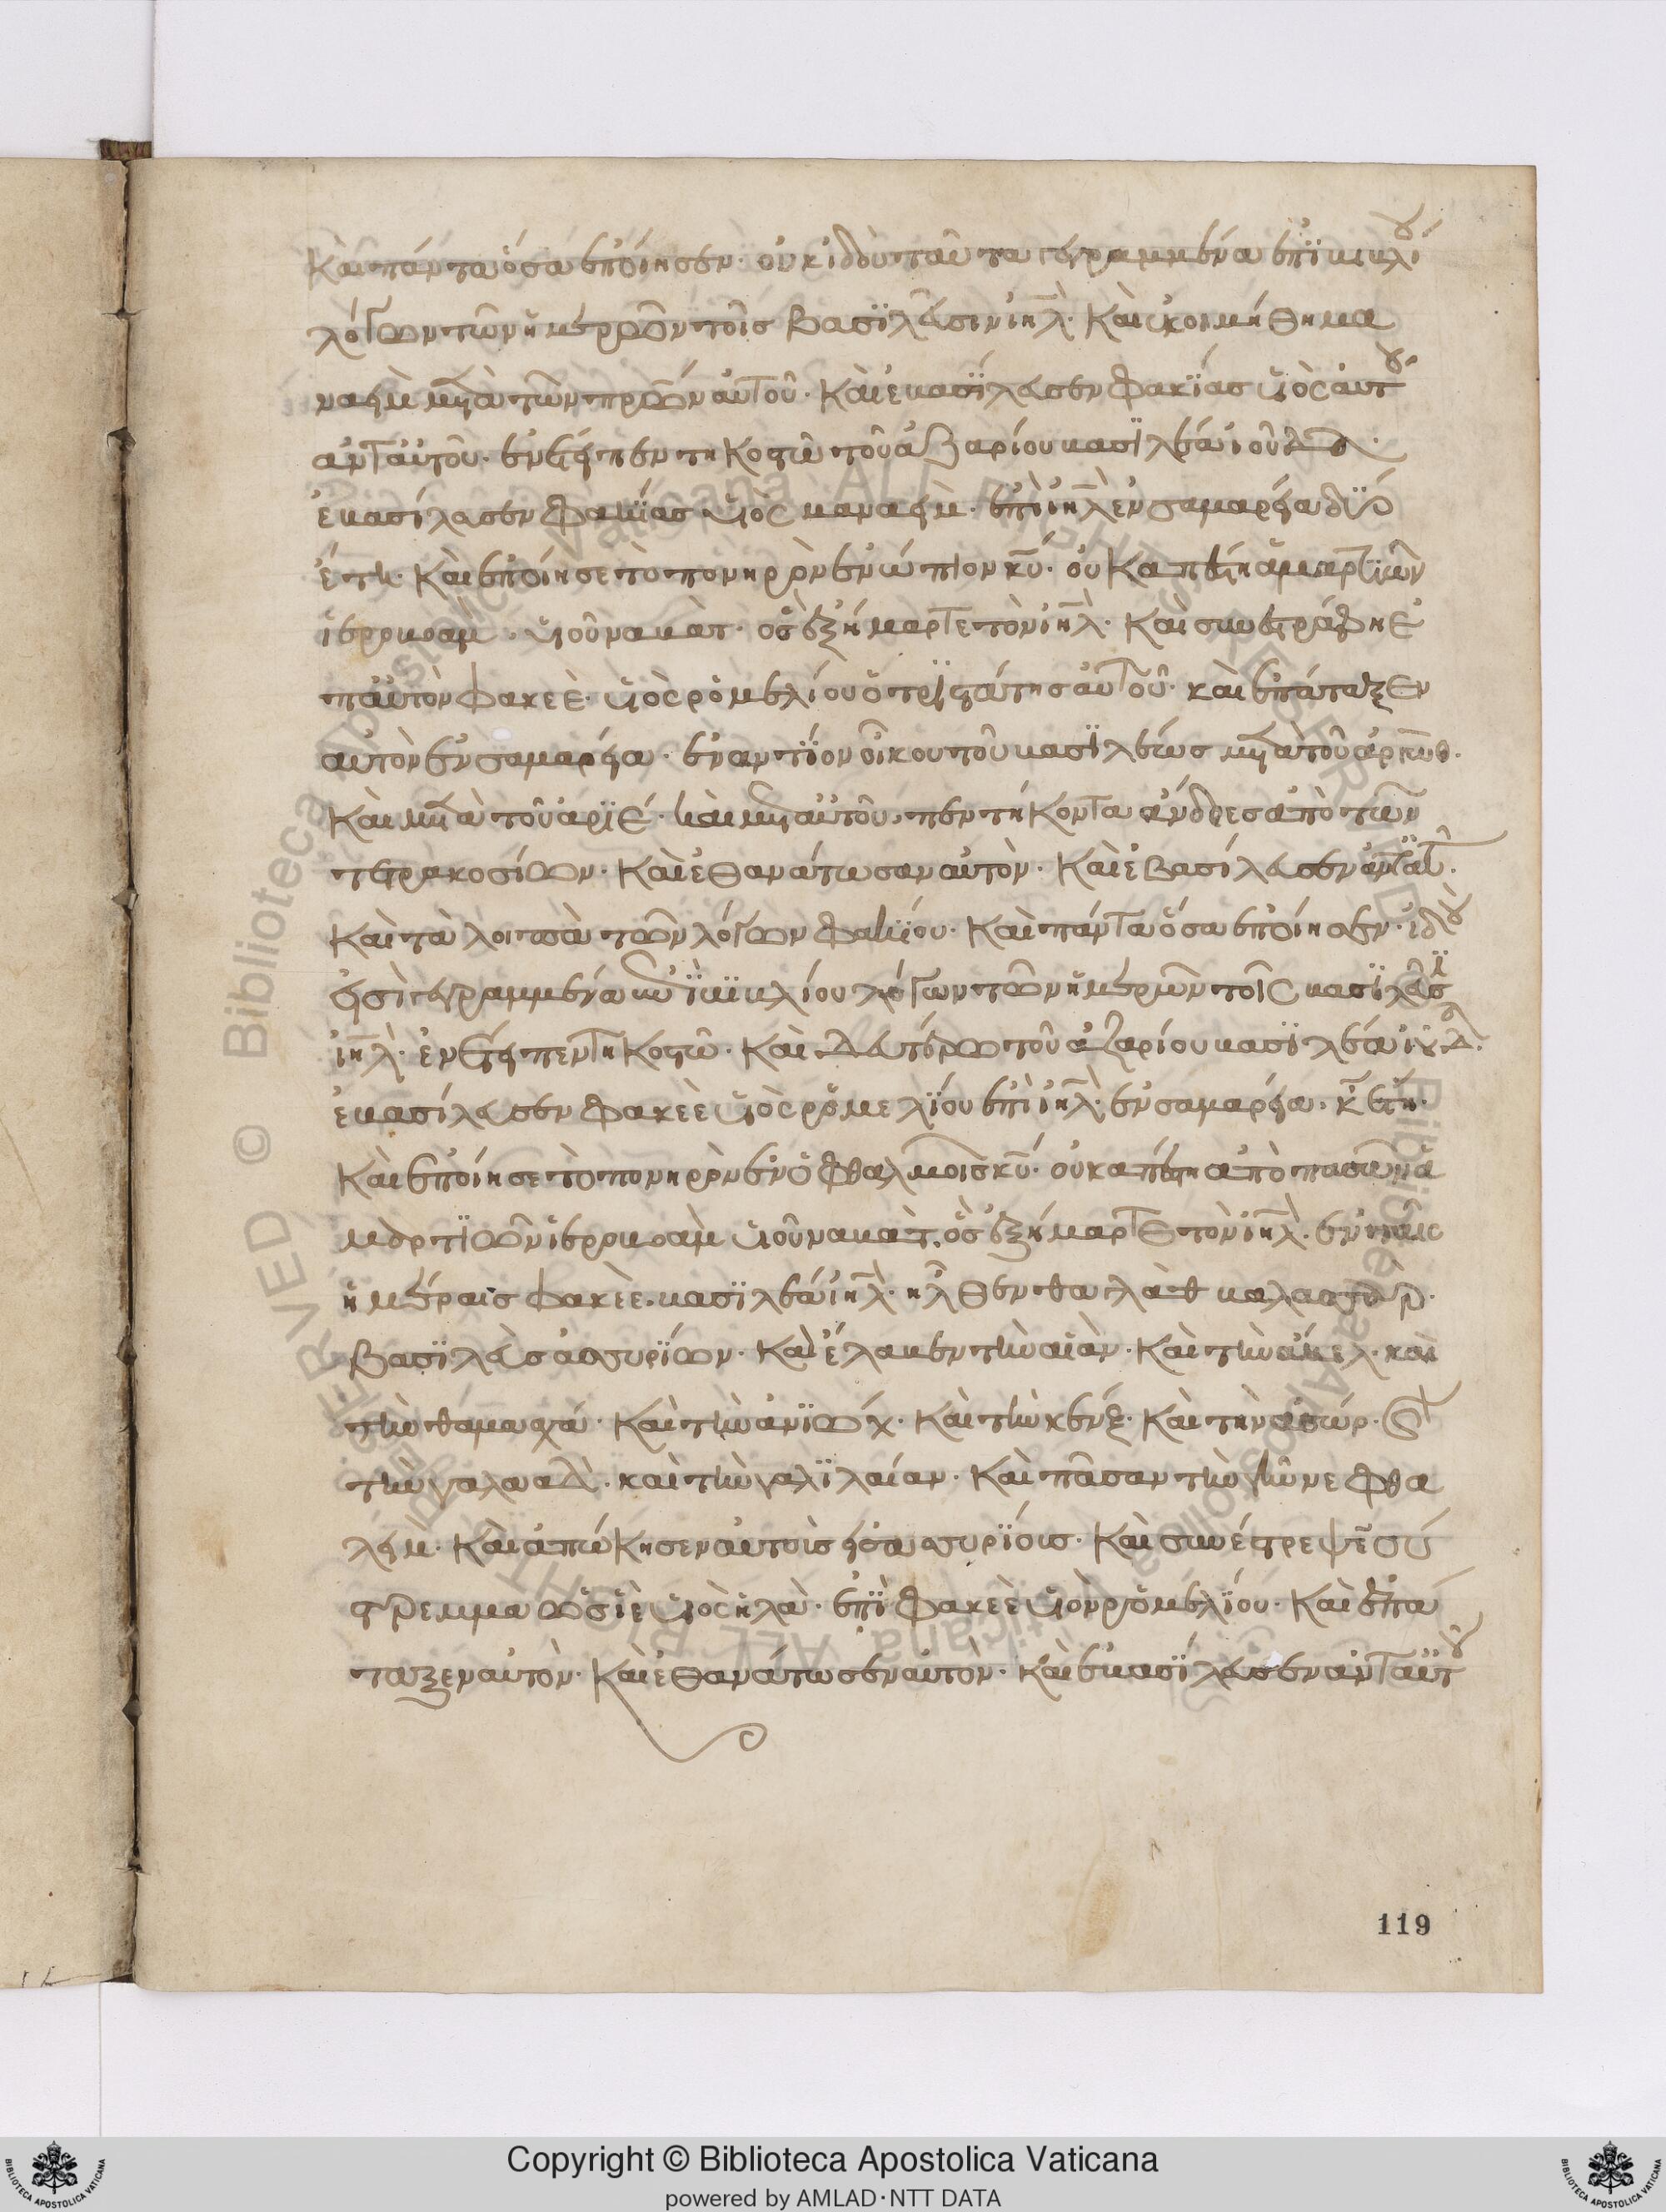 Καὶ πάντα ὅσα ἐποίησεν· οὐκ ἰδοὺ ταῦτα γεγραμμένα ἐπὶ βιβλίου
λόγων τῶν ἡμερῶν τοῖς βασιλεῦσιν ιηλ· Καὶ ἐκοιμήθη μα
ναεὶμ μετὰ τῶν πρων αὐτοῦ· Καὶ ἐβασίλευσεν φακίας υἱὸς αὐτου
ἀντ αὐτοῦ· ἐν ἔτει πεντηκοστῶ τοῦ ἀζαρίου βασιλέως ἰούδα·
ἐβασίλευσεν φακίας υἱὸς μαναεὶμ· ἐπὶ ιηλ ἐν σαμαρεία δύο
ἔτη· Καὶ ἐποίησε τὸ πονηρὸν ἐνώπιον κυ· οὐκ ἀπέστη ἁμαρτιῶν
ἱεροβοαμ· υἱοῦ ναβὰτ· ὃς ἐξήμαρτε τὸν ιηλ· Καὶ συνεστράφη ἐ
π αὐτὸν φακεὲ· υἱὸς ῥομελίου ὁ τριστάτης αὐτοῦ· καὶ ἐπάταξεν
αὐτὸν ἐν σαμαρεία· ἐναντίον οἴκου τοῦ βασιλέως μετὰ τοῦ ἀργωβ·
Καὶ μετὰ τοῦ ἀριέ· καὶ μετ αὐτοῦ, πεντήκοντα ἄνδρες ἀπὸ τῶν
τετρακοσίων· Καὶ ἐθανάτωσαν αὐτὸν· Καὶ ἐβασίλευσεν ἀντ αὐτ·
Καὶ τὰ λοιπὰ τῶν λόγων φακίου· Καὶ πάντα ὅσα ἐποίησεν· ἰδου
εἰσὶ γεγραμμένα ἐπὶ βιβλίου λόγων τῶν ἡμερῶν τοῖς βασιλεῦσι
ιηλ· ἐν ἔτει πεντηκοστῶ· Καὶ δευτέρω τοῦ ἀζαρίου βασιλέως ἰουδα·
ἐβασίλευσεν φακεὲ υἱὸς ῥομελίου ἐπὶ ιηλ· ἐν σαμαρεία· κ ἔτη·
Καὶ ἐποίησε τὸ πονηρὸν ἐν ὀφθαλμοῖς κυ· οὐκ ἀπέστη ἀπὸ πασῶν ἁ
μαρτιῶν ἱεροβοαμ υἱοῦ ναβὰτ· ὃς ἐξήμαρτε τὸν ιηλ· ἐν ταῖς
ἡμέραις φακεὲ· βασιλέως ιηλ· ἦλθεν θαγλὰθ
βασιλεὺς ἀσσυρίων· Καὶ ἔλαβεν τὴν αἰὰν· Καὶ τὴν ἀβελ· καὶ
τὴν θαμααχά· Καὶ τὴν ἀνιώχ· Καὶ τὴν κενέζ· Καὶ τὴν ἀσώρ· καὶ
τὴν γαλααδ· καὶ τὴν γαλιλαίαν· Καὶ πᾶσαν τὴν γῆν νεφθα
λείμ· Καὶ ἀπώκησεν αὐτοὺς εἰς ἀσυρίους· Καὶ συνέστρεψε σύ
στρεμμα ὡσιὲ υἱὸς ἠλὰ· ἐπὶ φακεὲ υἱὸν ῥομελίου· Καὶ ἐπά
ταξεν αὐτὸν· Καὶ ἐθανάτωσεν αὐτὸν· Καὶ ἐβασίλευσεν ἀντ αὐτου
119
Copyright © Biblioteca Apostolica Vaticana
powered by AMLAD·NTT DATA